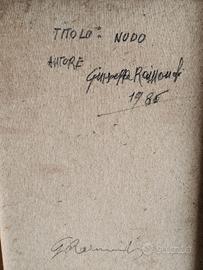 TITOLO: NUDO
AUTORE Giuseppe Raimondi
1986
G Raimondi